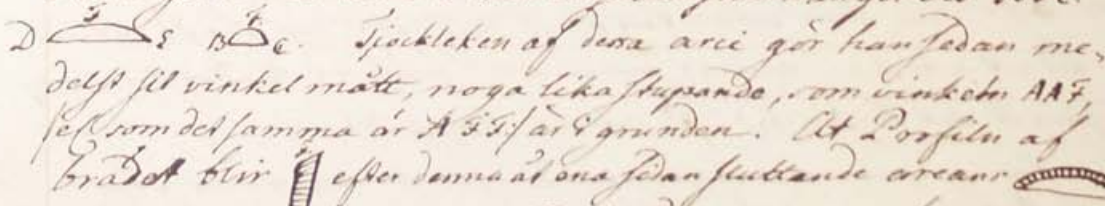 D F E B F C. Tjockleken af dessa arci gör han sedan me-
delst sit vinkel mått, noga lika stupande, som vinkeln AAF,
/el som det samma är AFF:/ är i grunden. At Profiln af
brädet blir efter denna åt ena sidan sluttande